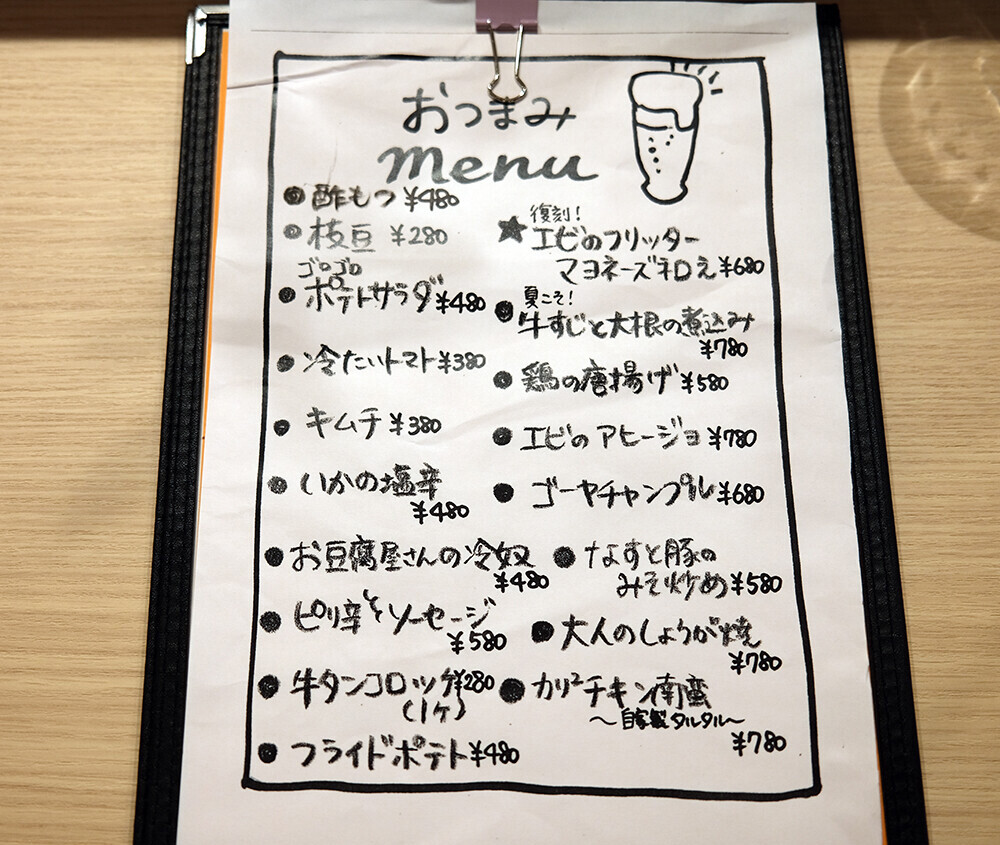 おつまみ
menu
●酢もつ ¥480
●枝豆 ¥280
ゴロゴロ
●ポテトサラダ ¥480
●冷たいトマト ¥380
●キムチ ¥380
●いかの塩辛
¥480
●お豆腐屋さんの冷奴
¥480
●ピリ辛ソーセージ
¥580
●牛タンコロッケ ¥280
(1ケ)
●フライドポテト ¥480
復刻!
★エビのフリッター
マヨネーズ和え ¥680
夏こそ!
●牛すじと大根の煮込み
¥780
●鶏の唐揚げ ¥580
●エビのアヒージョ ¥780
●ゴーヤチャンプル ¥680
●なすと豚の
みそ炒め ¥580
●大人のしょうが焼
¥780
●カリ²チキン南蛮
～自家製タルタル～
¥780